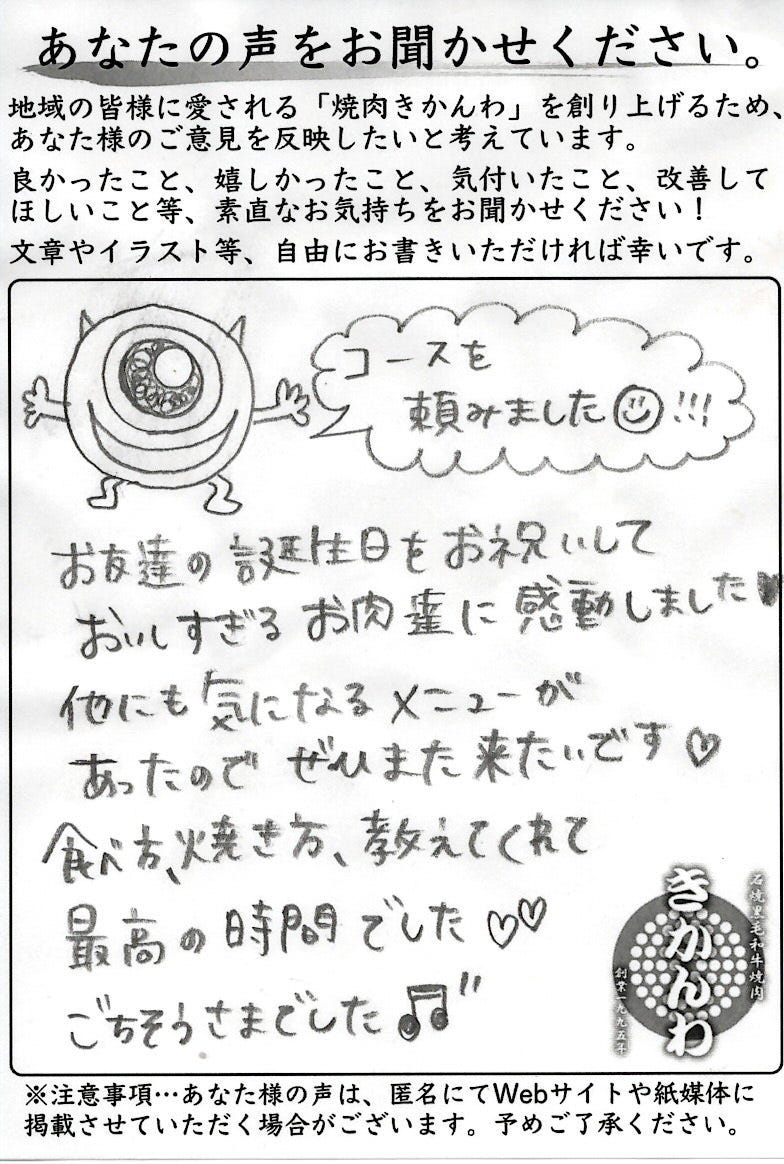 あなたの声をお聞かせください。
地域の皆様に愛される「焼肉きかんわ」を創り上げるため、
あなた様のご意見を反映したいと考えています。
良かったこと、嬉しかったこと、気付いたこと、改善して
ほしいこと等、素直なお気持ちをお聞かせください！
文章やイラスト等、自由にお書きいただければ幸いです。
コースを
頼みました☺!!!
お友達の誕生日をお祝いして
おいしすぎるお肉達に感動しました♥
他にも気になるメニューが
あったので ぜひまた来たいです♡
食べ方、焼き方、教えてくれて
最高の時間でした♡♡
ごちそうさまでした♫"
石焼黒毛和牛焼肉
きかんわ
創業一九九五年
※注意事項…あなた様の声は、匿名にてWebサイトや紙媒体に
掲載させていただく場合がございます。予めご了承ください。